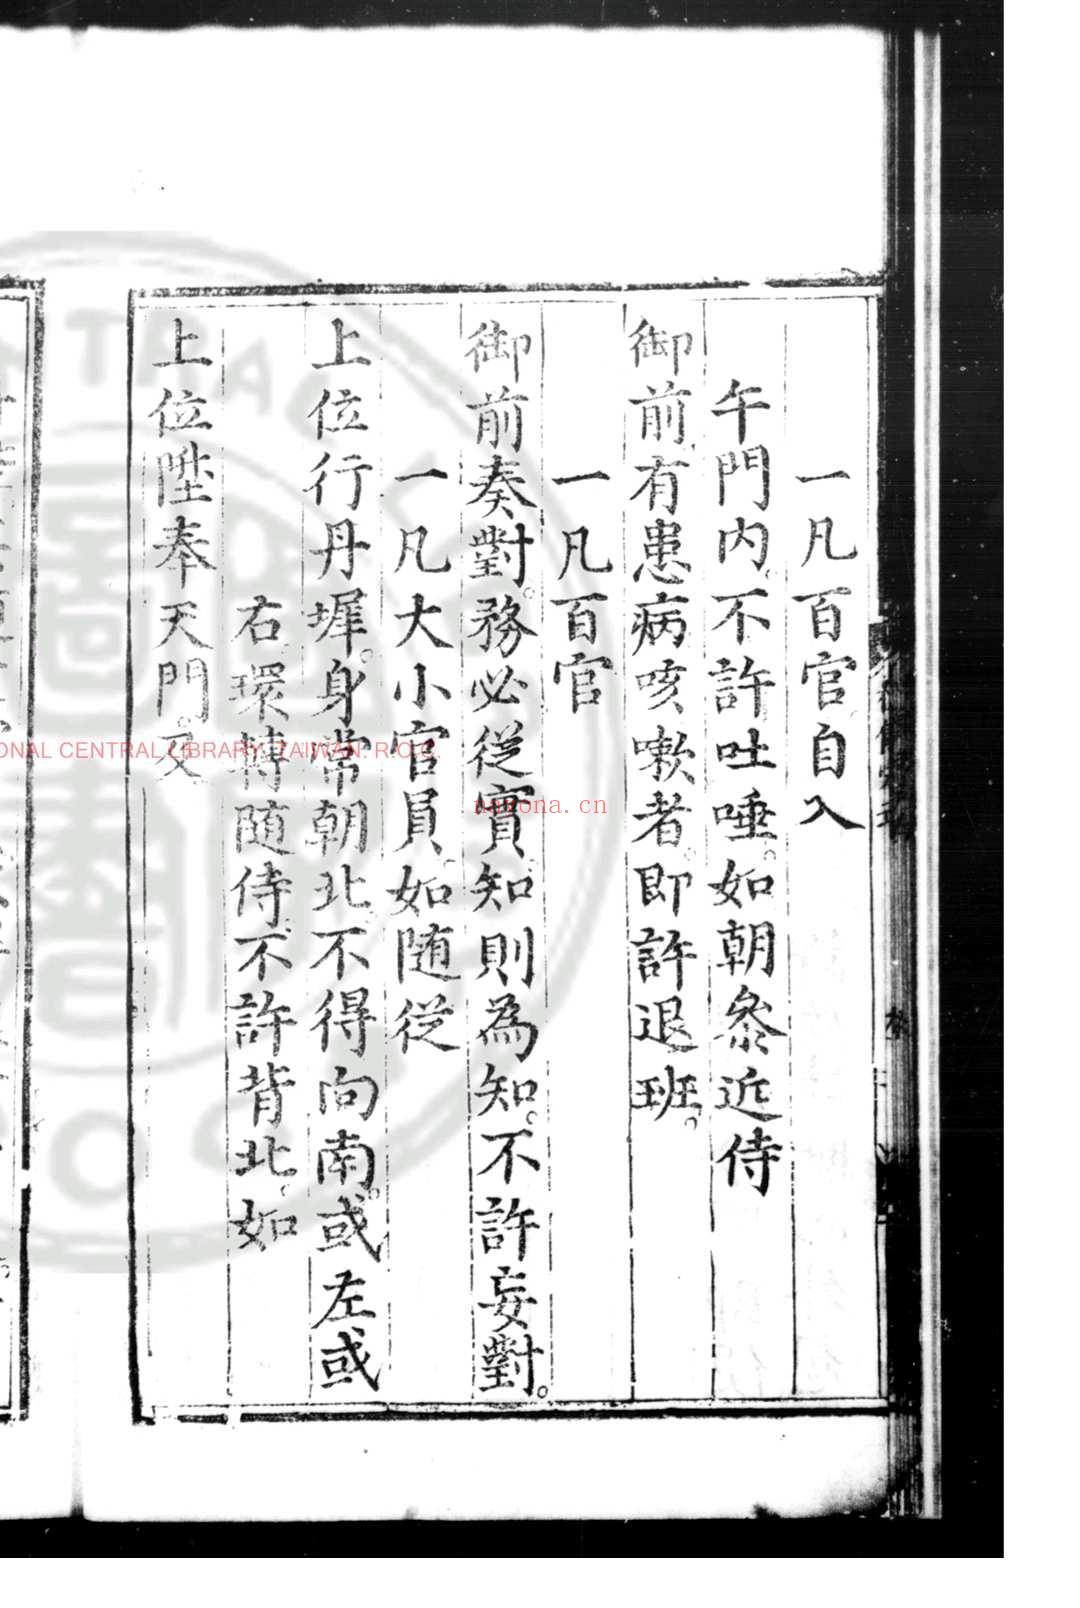 一凡百官自入
午門内。不許吐唾。如朝叅近侍
御前。有患病咳嗽者。即許退班。
一凡百官
御前奏對。務必從實。知則為知。不許妄對。
一凡大小官員。如随從
上位行丹墀。身常朝北。不得向南。或左或
右。環轉随侍。不許背北。如
上位陞奉天門。及
NATIONAL CENTRAL LIBRARY, TAIWAN. R.O.C.
nayona.cn